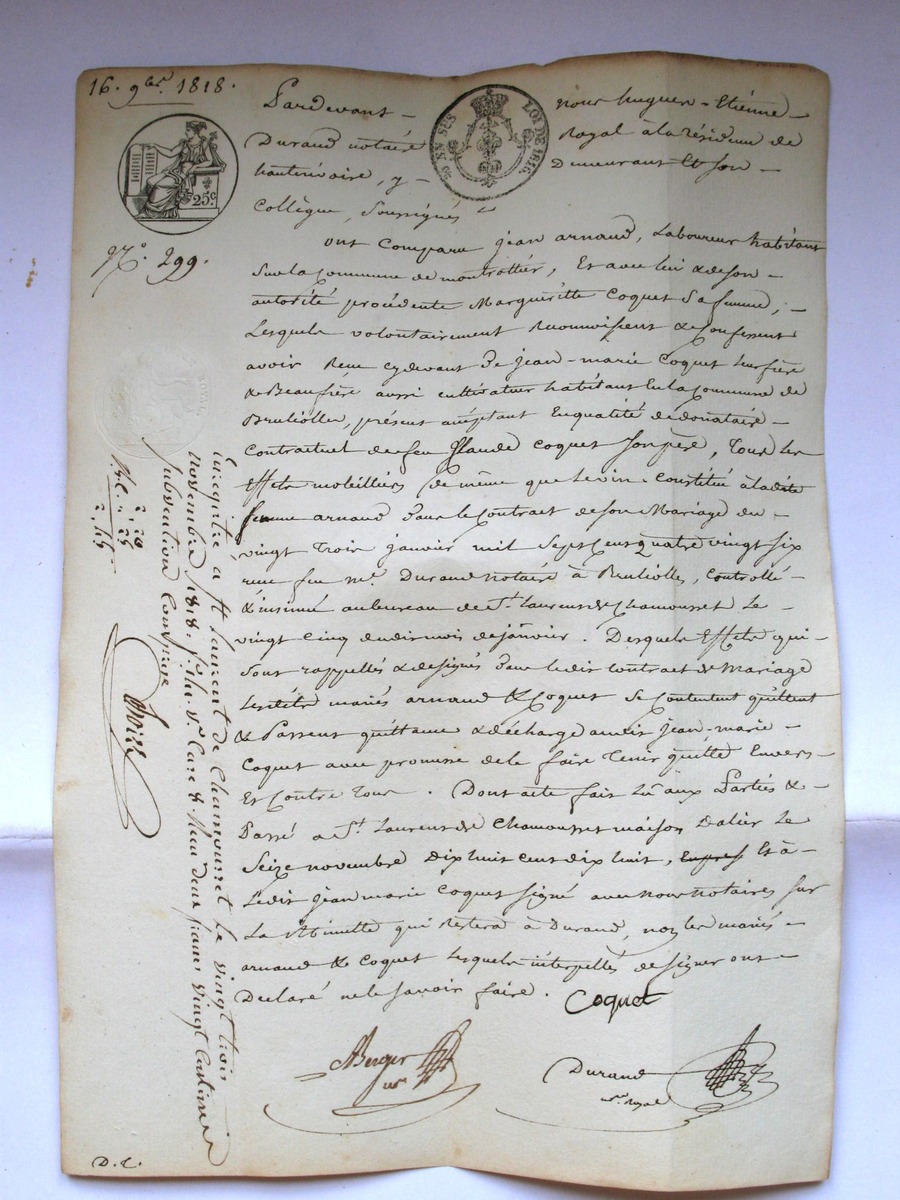 16. 9bre. 1818.
Pardevant nous hugues-Etiénne
Durand notaire Royal à la résidence de
hauterivoire, y demeurant Et son
Collègue, soussignés
25c
LOI DE 1816.
N.° 299.
ont comparu jean arnaud, Laboureur habitant
sur la commune de montrottier, Et avec lui & de son
autorité procédente Marguéritte Coquet sa femme,
Lesquels volontairement Reconnoissent & Confessent
avoir Reçu cy devant de jean-marie Coquet leur frère
& Beaufrère aussi cultivateur habitant En la Commune de
Brulliolles, présent acceptant En qualité de donataire
Contractuel de feu Claude Coquet son père, Tous les
Effets mobilliers de même que le vin Constitué à la dite
femme arnaud dans le Contract de son Mariage du
vingt Trois janvier mil Sept Cent quatre vingt six
reçu feu me. Durand notaire à Brulliolles, Controllé
& insinué au bureau de St. Laurent de Chamousset Le
vingt Cinq dudit mois de janvier. Desquels Effets qui
sont rappellés & désignés dans le dit Contract de Mariage
Les dits mariés arnaud & Coquet se Contentent quittent
& Passent quittance & décharge audit jean-marie
Coquet avec promesse de le faire Tenir quitte Envers
Et Contre Tous. Dont acte fait Lu aux Parties &
Passé à St. Laurent de Chamousset maison Dalier Le
Seize novembre dix huit cent dix huit, Et à
Ledit jean marie Coquet signé avec nous notaires sur
La Minutte qui Restera à Durand, non les mariés
arnaud & Coquet Lesquels interpellés de signer ont
Déclaré ne le savoir faire. Coquet
Berger nre
Durand nre. Royal
Enregistré à St Laurent de Chamousset le vingt trois
novembre 1818. Reçu deux francs vingt centimes
subvention Comprise
2, 20
" 25
2, 45
D. C.